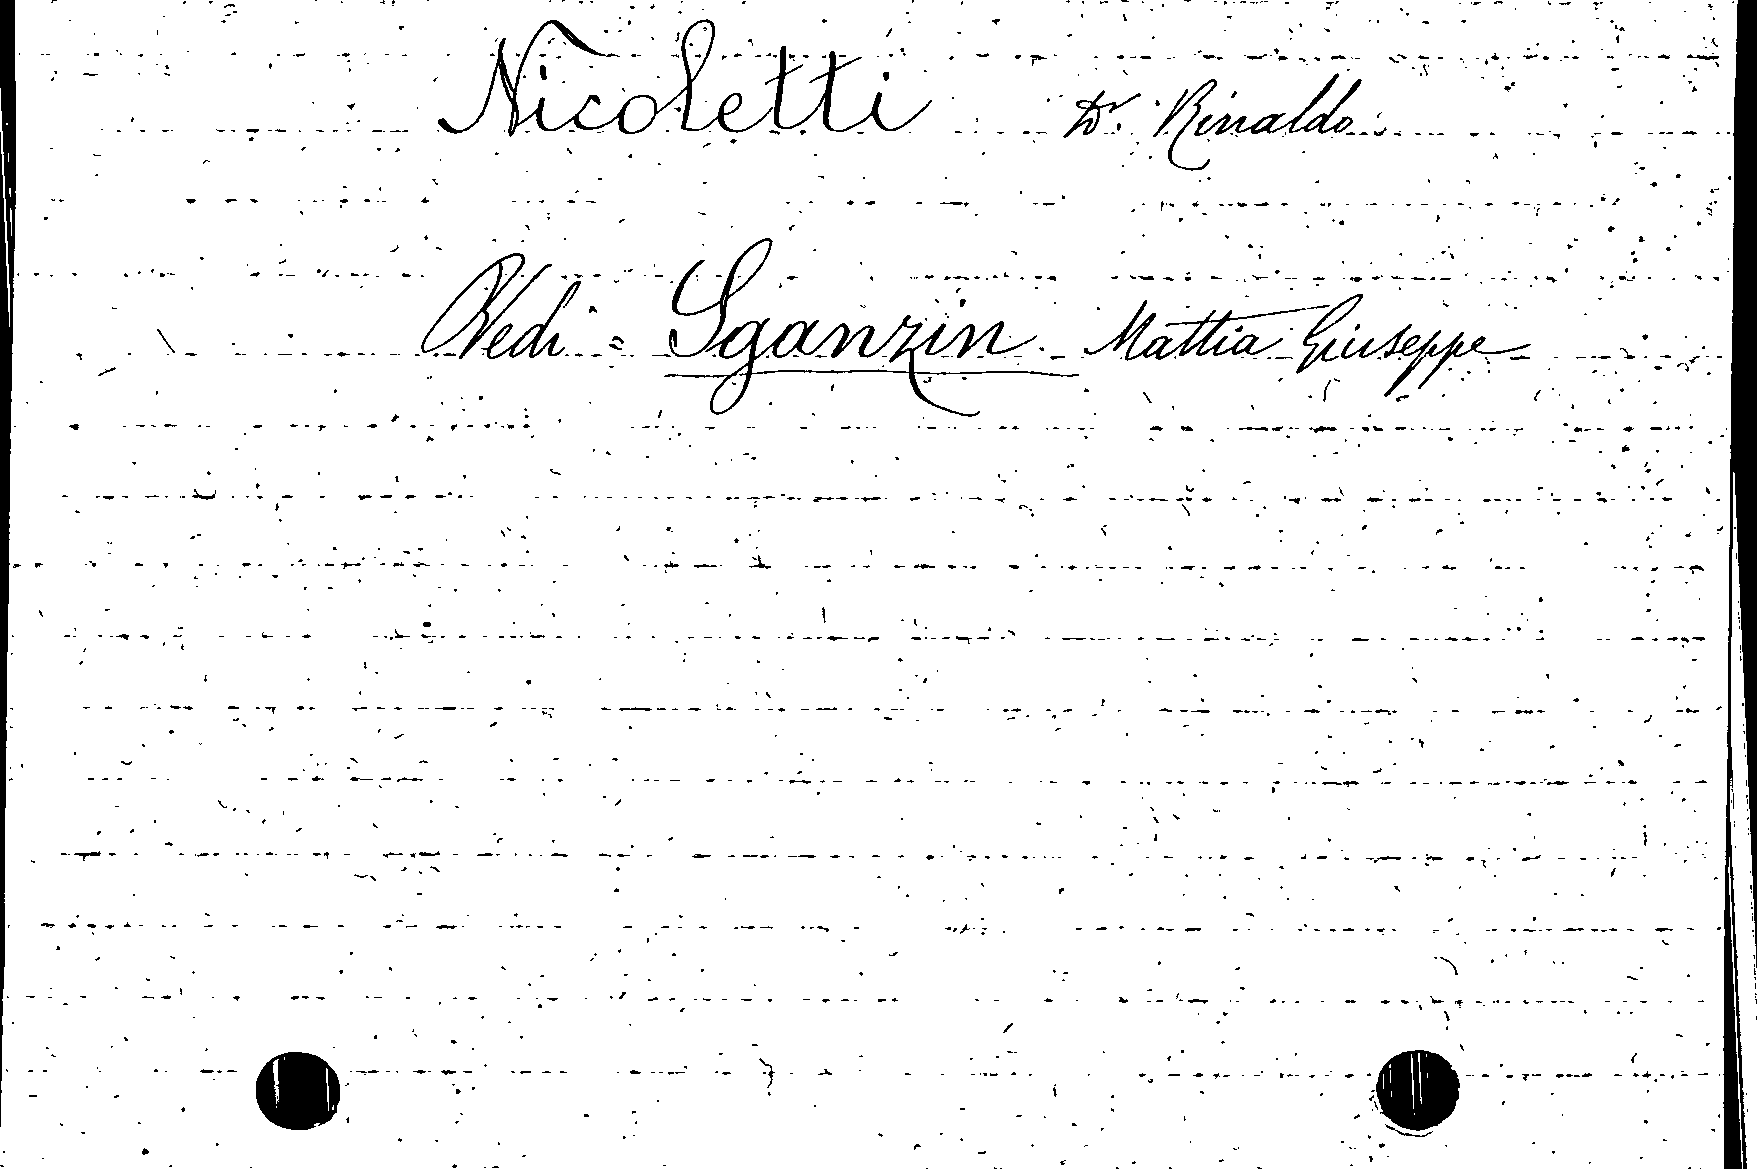 Nicoletti Dr. Rinaldo
Vedi = Sganzin. Mattia Giuseppe